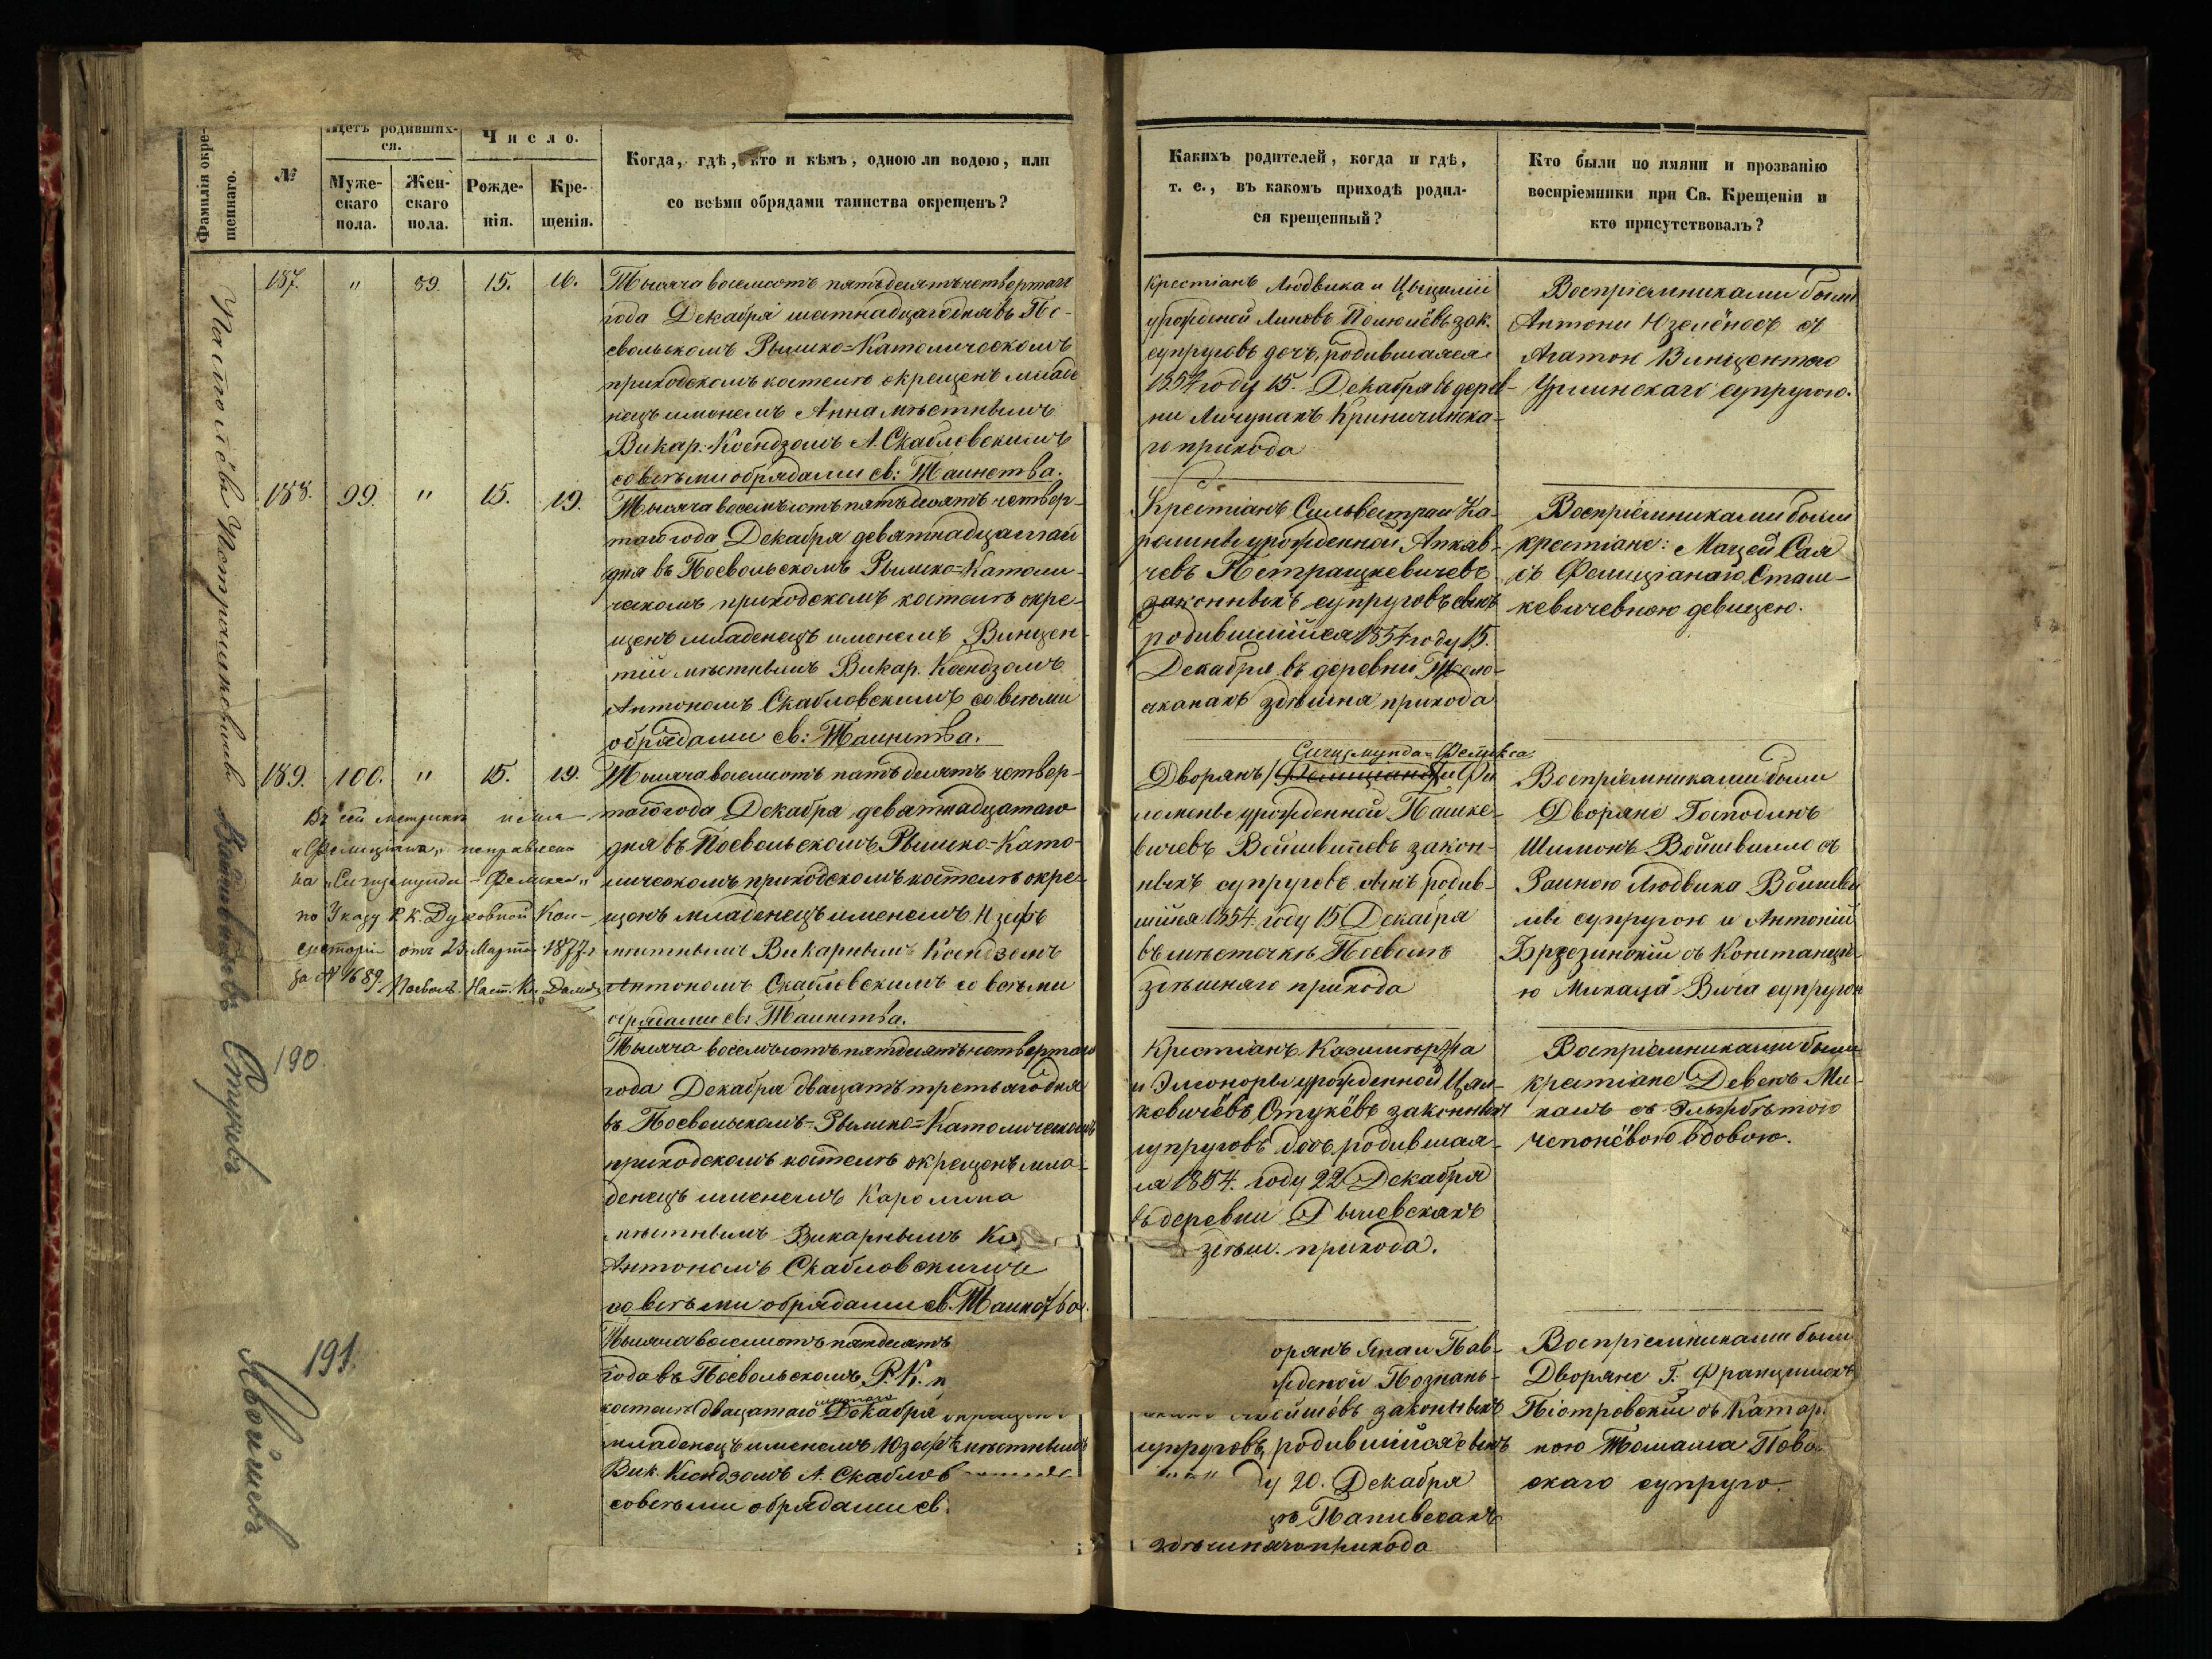 Фамилія окре-
щеннаго.
№
Щетъ родивших-
ся.
Муже-
скаго
пола.
Жен-
скаго
пола.
Число.
Рожде-
нія.
Кре-
щенія.
Когда, гдѣ, кто и кѣмъ, одною ли водою, или
со всѣми обрядами таинства окрещенъ?
Какихъ родителей, когда и гдѣ,
т. е., въ какомъ приходѣ родил-
ся крещенный?
Кто были по имяни и прозванію
воспріемники при Св. Крещеніи и
кто присутствовалъ?
187. " 89. 15. 16.
Тысяча восемсотъ пятьдесятъ четвертаго
года Декабря шетнадцаго дня въ По-
свольскомъ Рымско=Католическомъ
приходскомъ костелѣ окрещенъ младе
нецъ именемъ Анна мѣстнымъ
Викар. Ксендзомъ А. Скабловскимъ
со всѣми обрядами св: Таинства.
Крестіанъ Людвика и Цыциліи
урожденой Линовъ зак.
супруговъ дочь, родившаяся
1854 году 15. Декабря въ дерев-
ни Личунахъ Криничинска-
го прихода
Воспріемниками были
Антони Юзелёнасъ съ
Агатою Винцентого
супругою.
Петрашкевичъ
188. 99. " 15. 19.
Тысяча восемьсотъ пятьдесятъ четвер-
таго года Декабря девятнадцатаго
дня въ Посвольскомъ Рымско=Католи-
ческомъ приходскомъ костелѣ окре-
щенъ младенецъ именемъ Винцен-
тій мѣстнымъ Викар. Ксендзомъ
Антономъ Скабловскимъ со всѣми
обрядами св: Таинства.
Крестіанъ Сильвестра и Ка-
ролины урожденной Апкав-
чевъ Петрашкевичевъ
законныхъ супруговъ сынъ
родившійся 1854 году 15.
Декабря въ деревни
здѣшня прихода
Воспріемниками были
крестіане: Мацей Сая
съ Фелиціаною Сташ-
кевичевною девицею.
189. 100. " 15. 19.
Тысяча восемсотъ пятьдесятъ четвер-
таго года Декабря девятнадцатаго
дня въ Посвольскомъ Рымско=Като-
лическомъ приходскомъ костелѣ окре-
щенъ младенецъ именемъ Юзефъ
мѣстнымъ Викарнымъ Ксендзомъ
Антономъ Скабловскимъ со всѣми
обрядами св: Таинства.
Въ сей метрикѣ имя
"Фелиціана" поправлено
на "Сигизмунда-Феликса"
по Указу Р. К. Духовной Кон-
систоріи отъ 23 Марта 1877 г
за № 1689.
Сигизмунда=Феликса
Дворянъ Фелиціана и Фи
ломены урожденной Пашке-
вичевъ Войшвиловъ закон-
ныхъ супруговъ сынъ родив-
шійся 1854. году 15 Декабря
въ мѣстечкѣ Посволѣ
здѣшняго прихода
Воспріемниками были
Дворяне Господинъ
Шимонъ Войшвилло съ
Раиною Людвика Войшви
лы супругою и Антоній
Брзезинскій съ Констанціе
ю супругою
Стукевъ
190.
Тысяча восемьсотъ пятдесятъ четвертаго
года Декабря двацатъ третьяго дня
въ Посвольскомъ=Рымско=Католическомъ
приходскомъ костелѣ окрещенъ мла-
денецъ именемъ Каролина
мѣстнымъ Викарнымъ Кс
Антономъ Скабловскимъ
со всѣми обрядами св. Таинства.
Крестіанъ Казимѣржа
и Элеоноры урожденной Цял-
ковичёвъ Стукёвъ законныхъ
супруговъ дочь, родившая-
ся 1854. году 22 Декабря
въ деревни
здѣш. прихода.
Воспріемниками были
крестіане Девенъ Ми-
калъ съ Эльжбѣтою
чепонёвою вдовою.
191.
Тысяча восемсотъ пятдесятъ
года въ Посвольскомъ Р. К. п
костелѣ двацатаго Декабря
младенецъ именемъ Юзефъ мѣстнымъ
Вик. Ксендзомъ А. Скаблов
со всѣми обрядами св.
орянъ Яна и Пав-
жденой Познань-
законныхъ
супруговъ, родившійся сынъ
у 20. Декабря
здѣшняго прихода
Воспріемниками были
Дворяне Г. Францишекъ
Піотровскій съ Катар
ною Томаша
скаго супруго